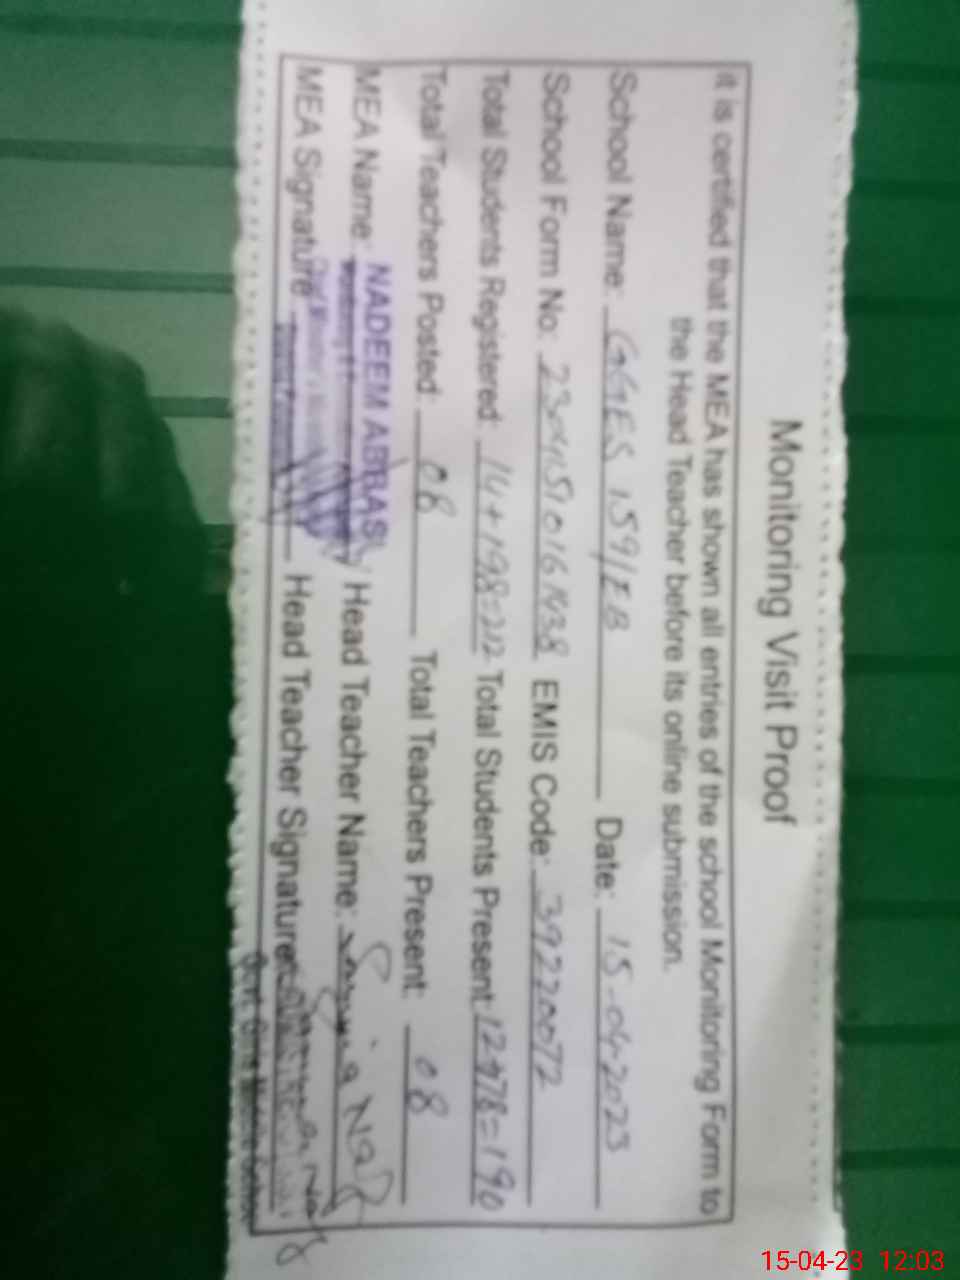 Monitoring Visit Proof
It is certified that the MEA has shown all entries of the school Monitoring Form to
the Head Teacher before its online submission.
School Name: GGES 159/EB Date: 15-04-2023
School Form No: EMIS Code: 39220072
Total Students Registered: 14+198=212 Total Students Present: 12+178=190
Total Teachers Posted: 08 Total Teachers Present: 08
MEA Name: NADEEM ABBAS Head Teacher Name:
MEA Signature Head Teacher Signature
15-04-23 12:03